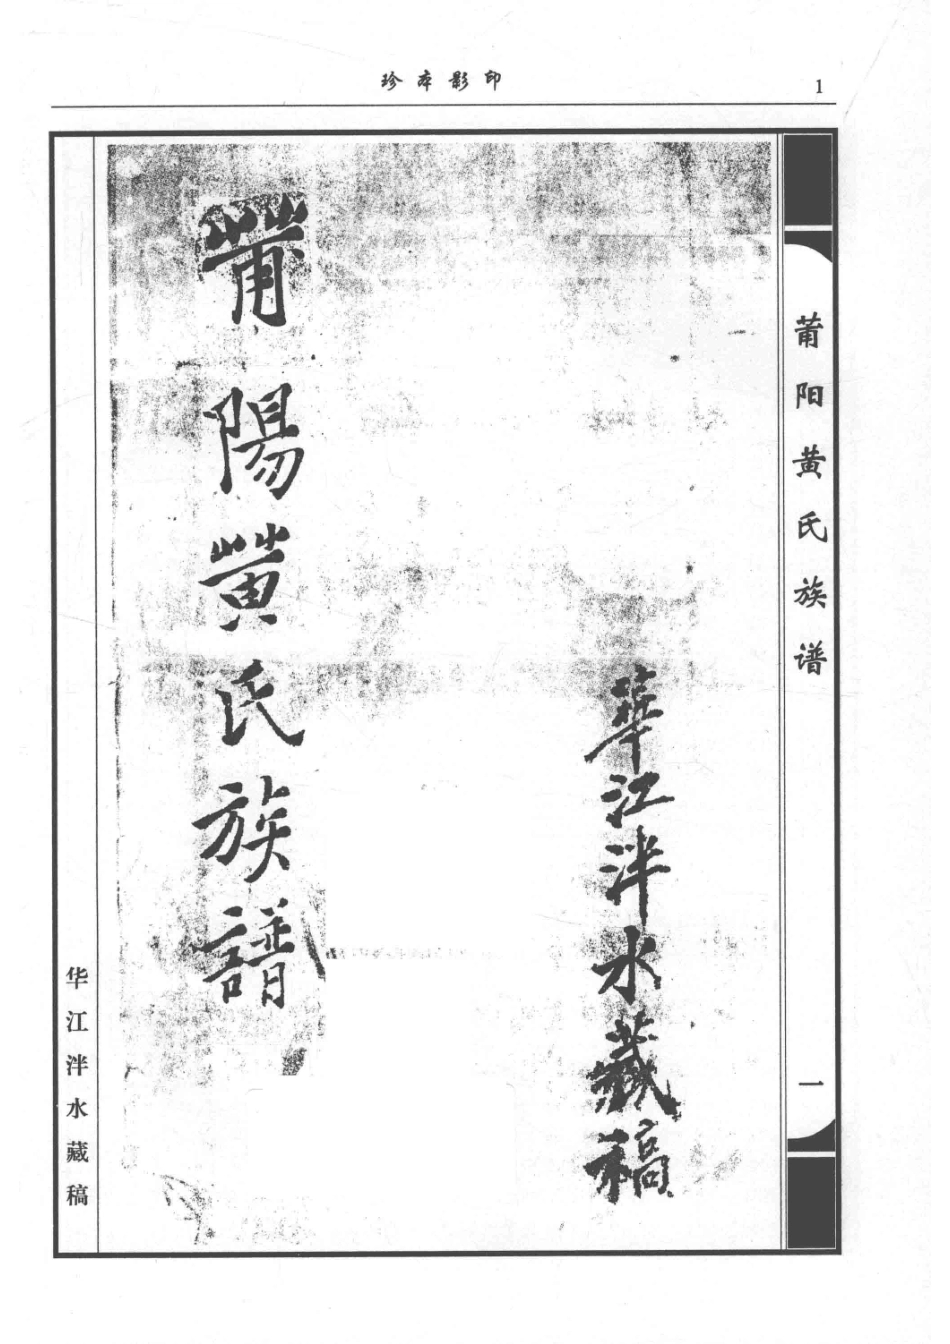 珍本影印
1
莆阳黄氏族谱
一
華江泮水藏稿
莆陽黄氏族譜
华江泮水藏稿